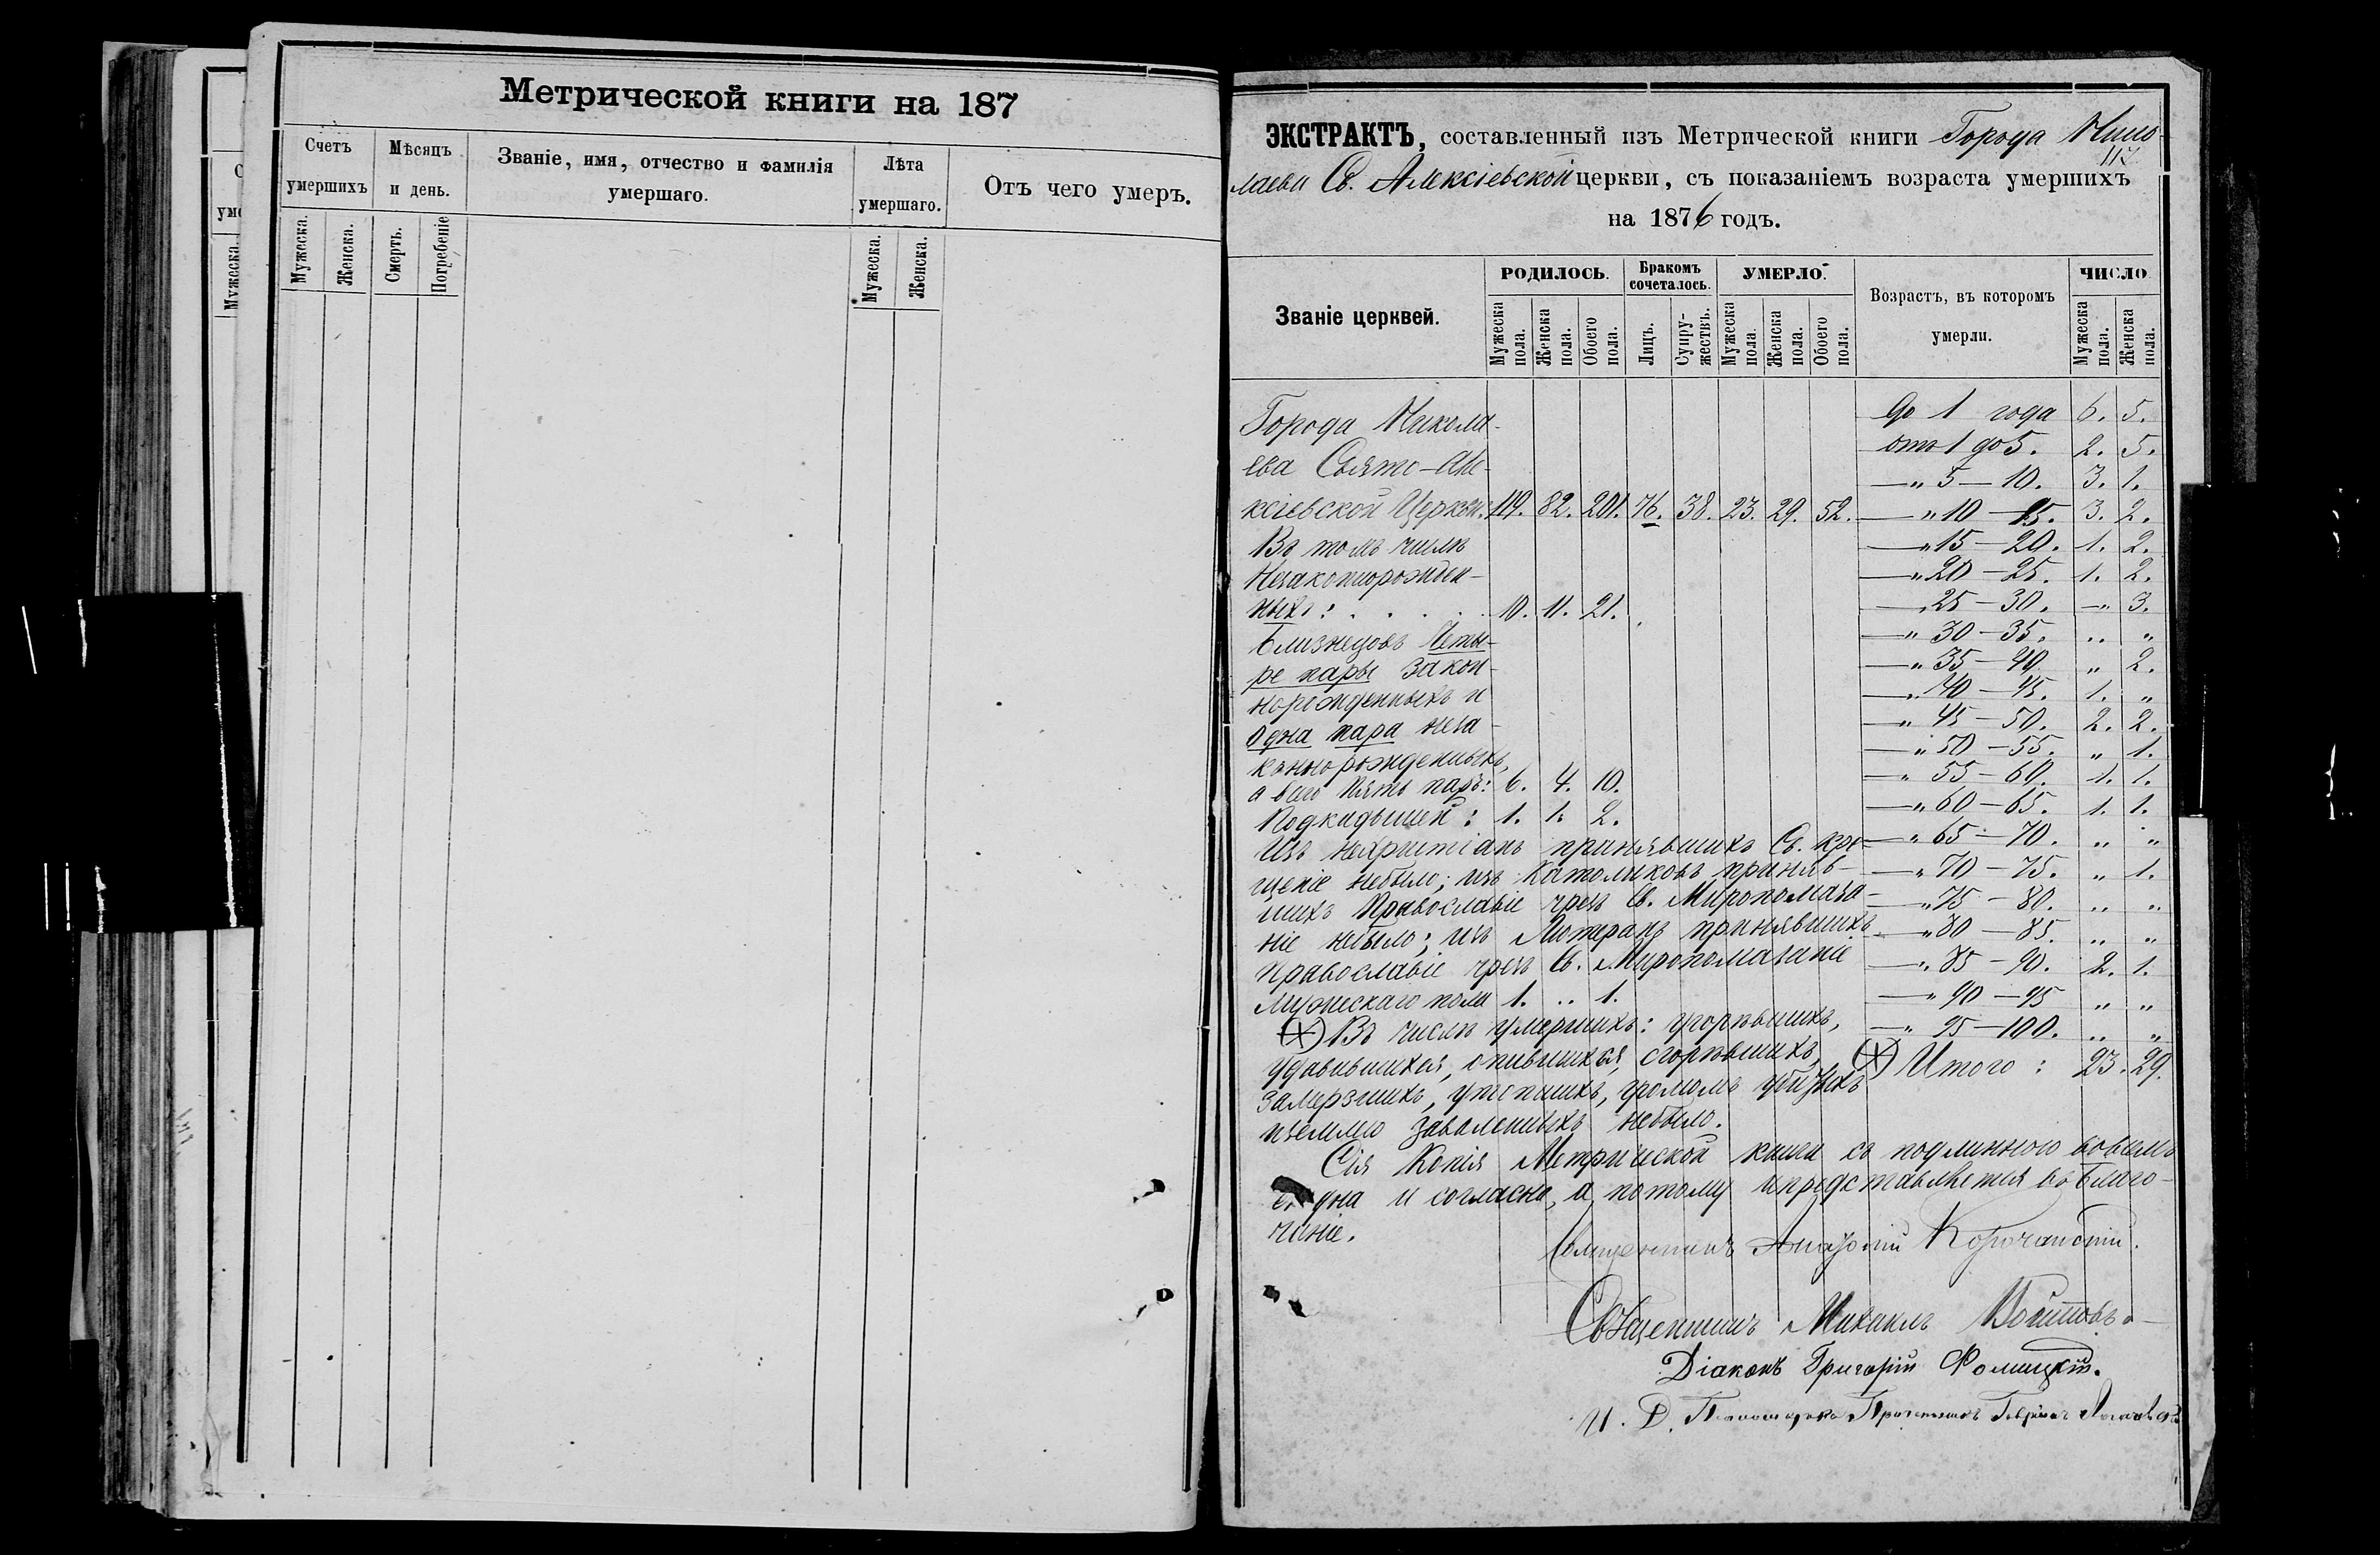 Метрической книги на 187
Счетъ умершихъ
Мѣсяцъ и день.
Званіе, имя, отчество и фамилія умершаго.
Лѣта умершаго.
Отъ чего умеръ.
Мужеска. Женска. Смерть. Погребеніе Мужеска. Женска.
Мужеска.
ЭКСТРАКТЪ, составленный изъ Метрической книги Города Нико-
117
лаева Св. Алексіевской церкви, съ показаніемъ возраста умершихъ
на 1876 годъ.
Званіе церквей.
РОДИЛОСЬ. Бракомъ сочеталось. УМЕРЛО.
Возрастъ, въ которомъ умерли.
ЧИСЛО
Мужеска пола. Женска пола. Обоего пола. Лицъ. Супру-жествъ. Мужеска пола. Женска пола. Обоего пола. Мужеска пола. Женска пола.
Города Никола-
ева Свято-Але-
ксіевской Церкви. 119. 82. 201. 76. 38. 23. 29. 52.
Въ томъ числѣ
Незаконнорожден-
ныхъ: . . . . . 10. 11. 21.
Близнецовъ Четы-
ре пары закон-
норожденныхъ и
Одна пара неза-
коннорожденныхъ,
а всего пять паръ: 6. 4. 10.
Подкидышей: 1. 1. 2.
Изъ нехристіанъ принявшихъ Св. кре-
щеніе небыло; изъ Католиковъ приняв-
шихъ Православіе чрезъ Св. Миропомаза-
ніе небыло; изъ Лютеранъ принявшихъ
Православіе чрезъ Св. Миропомазаніе
Мужескаго пола 1. " 1.
(+) Въ числѣ умершихъ: угорѣвшихъ,
удавившихся, опившихся, сгорѣвшихъ,
замерзшихъ, утопшихъ, громомъ убитыхъ
и землею заваленныхъ небыло.
До 1 года 6. 5.
отъ 1 до 5. 2. 5.
— " 5 — 10. 3. 1.
— " 10 — 15. 3. 2.
— " 15 — 20. 1. 2.
— " 20 — 25. 1. 2.
— " 25 — 30. — " 3.
— " 30 — 35. " "
— " 35 — 40 " 2.
— " 40 — 45. 1. "
— " 45 — 50. 2. 2.
— " 50 — 55. " 1.
— " 55 — 60. 1. 1.
— " 60 — 65. 1. 1.
— " 65 — 70. " "
— " 70 — 75. " 1.
— " 75 — 80. " "
— " 80 — 85. " "
— " 85 — 90. 2. 1.
— " 90 — 95 " "
— " 95 — 100. " "
(+) Итого: 23. 29.
Сія Копія Метрической книги съ подлинною
и согласна, а потому и представляется въ Благо-
чиніе.
Священникъ Корочанскій.
Священникъ Михаилъ
Діаконъ Григорій Фомицкій.
И. Д.